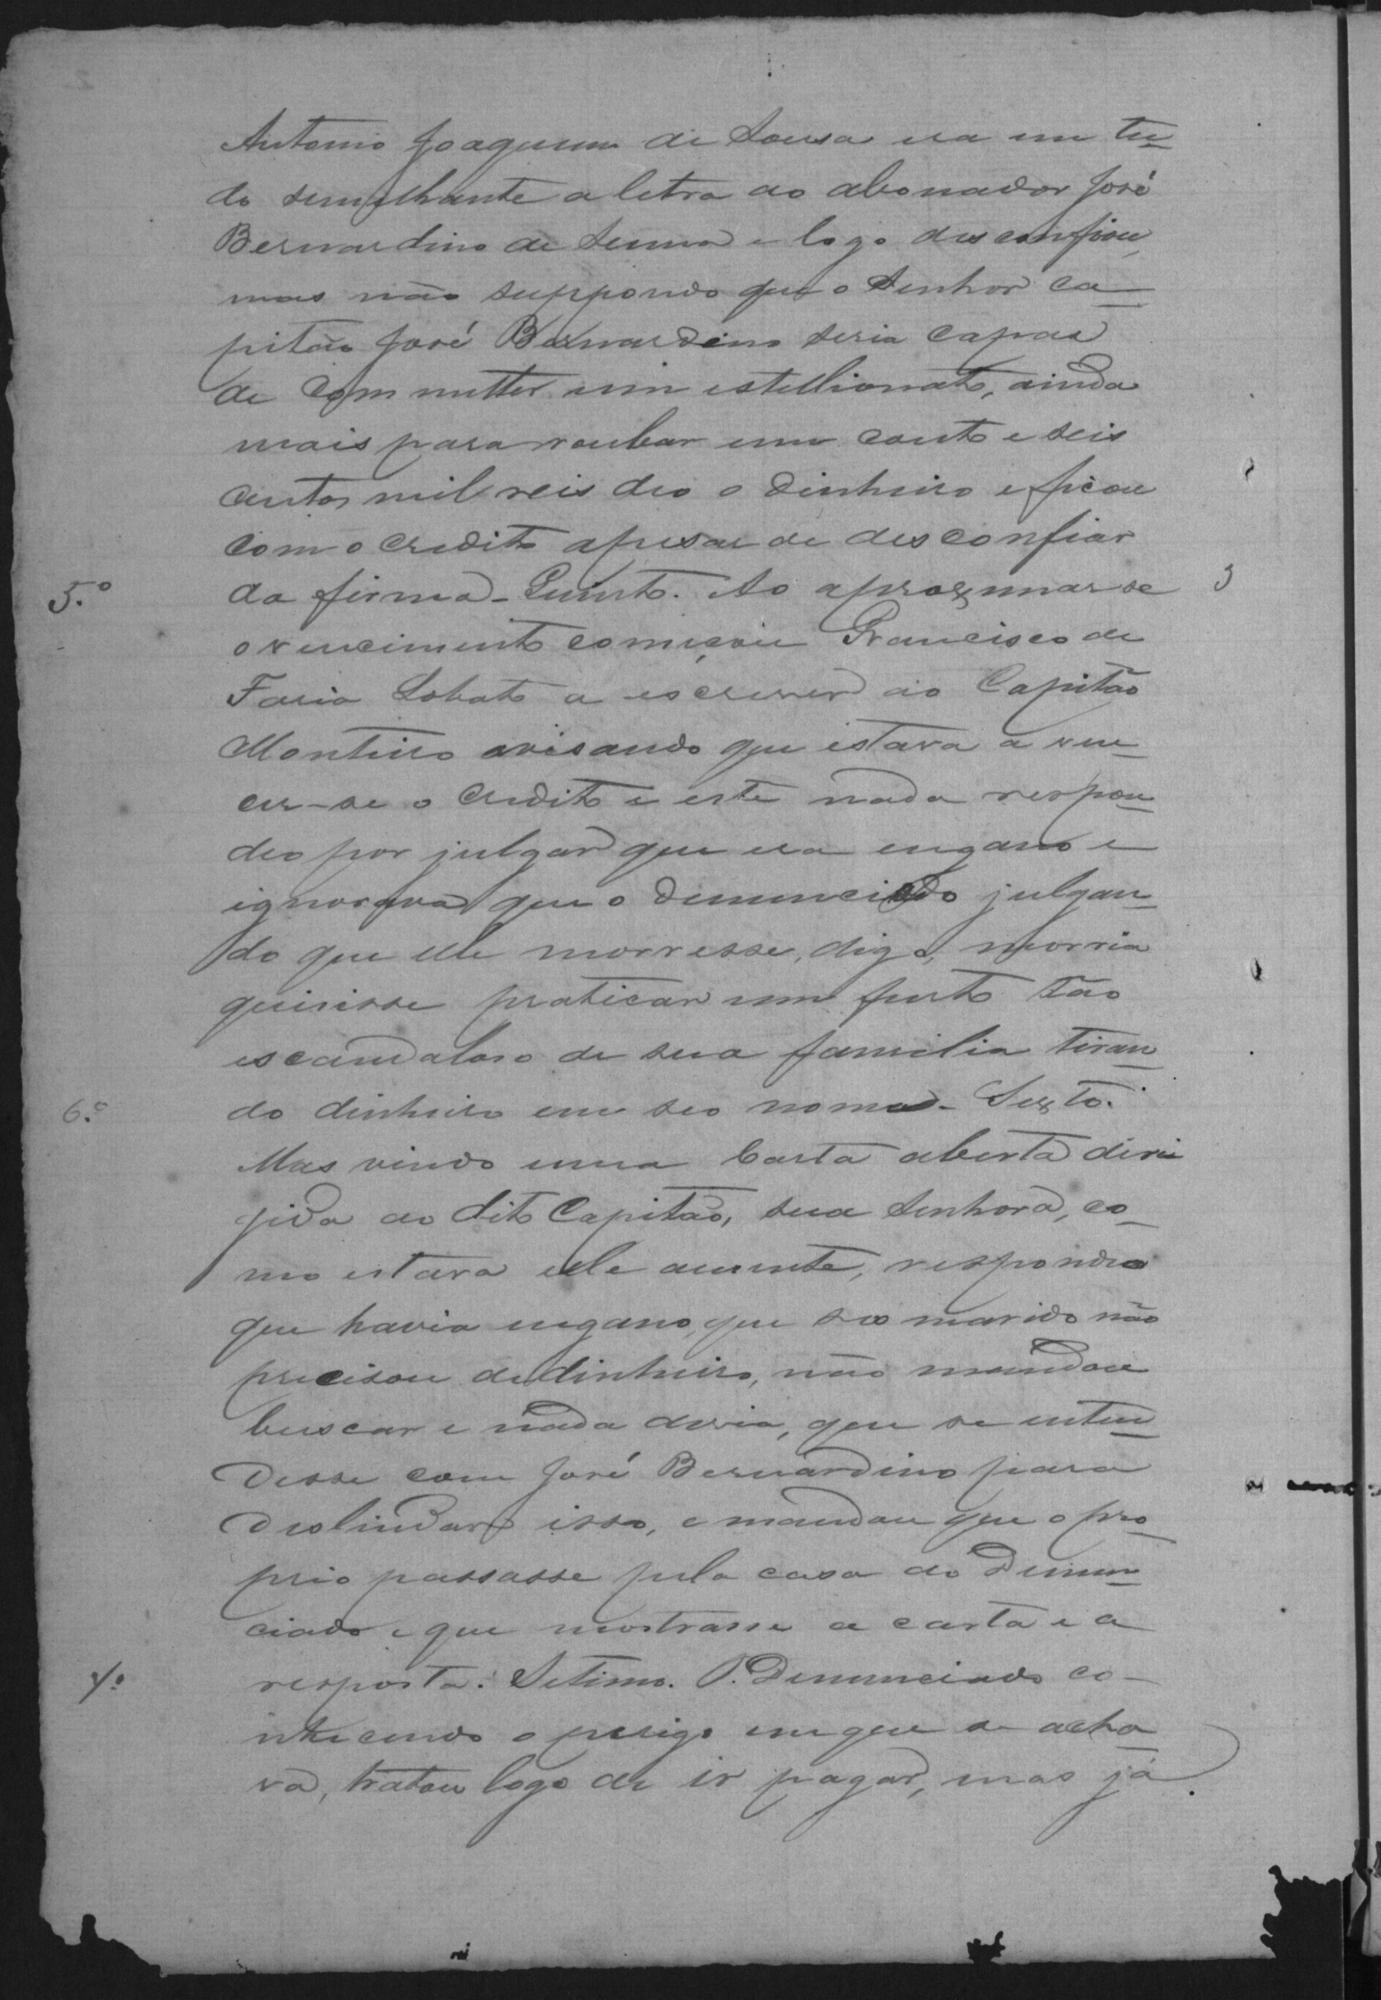 Antonio Joaquim de Sousa era em tu-
do semelhante a letra do abonador José
Bernardino de Senna e logo desconfiou,
mas não suppondo que o Senhor ca-
pitão José Bernardino seria capas
de commetter um estellionato, ainda
mais para roubar um conto e seis
centos mil reis deo o dinheiro e ficou
com o credito apesar de desconfiar
5.º da firma - Quinto. Ao aproximar-se
o vencimento começou Francisco de
Faria Lobato a escrever ao Capitão
Monteiro avisando que estava a ven-
cer-se o credito e este nada respon-
deo por julgar que era engano e
ignorava que o denunciado julgan-
do que elle morresse, digo, morria
quisisse praticar um furto tão
escandaloso de sua familia tiran-
6.º do dinheiro em seo nome - Sexto.
Mas vindo uma Carta aberta diri
gida ao dito Capitão, sua Senhora, co-
mo estava elle ausente, respondeo
que havia engano, que seo marido não
precisou de dinheiro, não mandou
buscar e nada devia, que se enten-
desse com José Bernardino para
deslindar isso, e mandou que o pro-
prio passasse pela casa do Denun-
ciado e que mostrasse a carta e a
7.º resposta. Setimo. O Denunciado co-
nhecendo o perigo em que se acha-
va, tratou logo de ir pagar, mas já